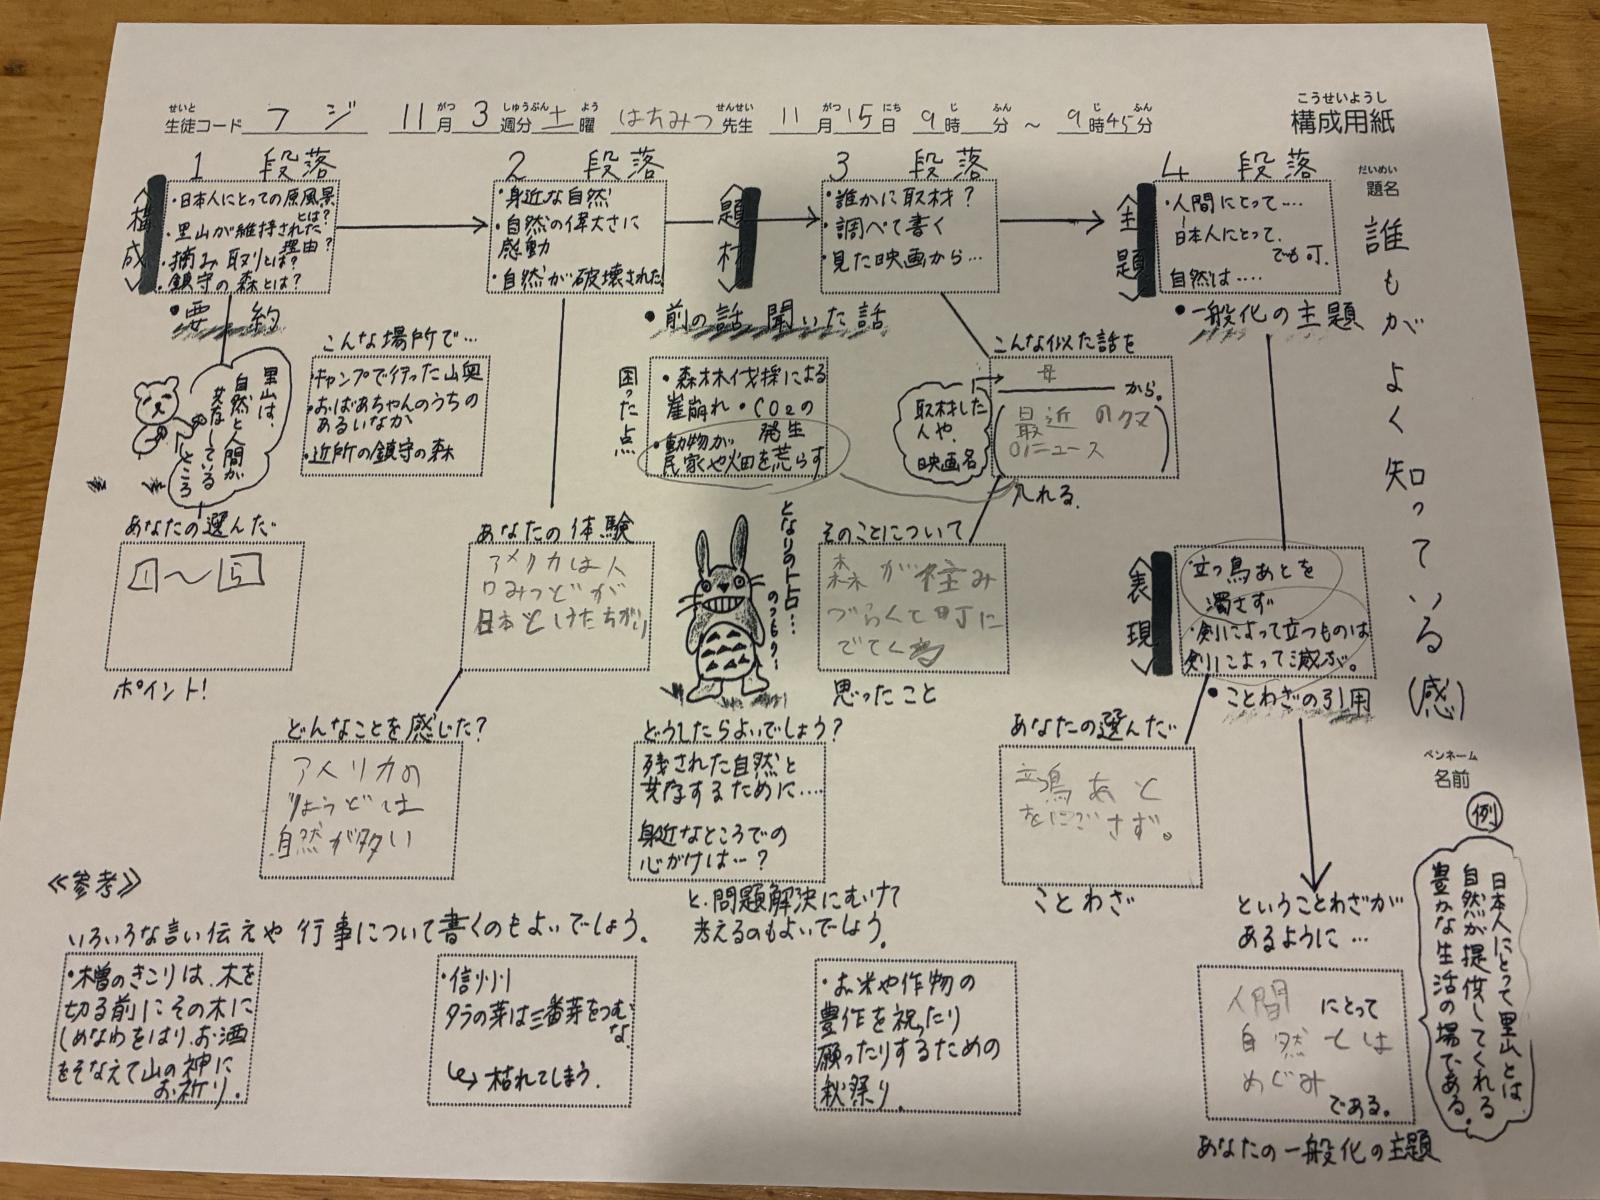 こうせいようし
構成用紙
せいと
生徒コード フジ 11月 3週分 土曜 はちみつ 先生 11月15日 9時 分 ～ 9時45分
がつ しゅうぶん よう せんせい がつ にち じ ふん じ ふん
だいめい
題名
誰もがよく知っている(感)
ペンネーム
名前
1 段落
〈構成〉
・日本人にとっての原風景とは？
・里山が維持された理由？
・摘み取りとは？
・鎮守の森とは？
・要約
里山は、
自然と人間が
共存している
ところ
あなたの選んだ
1～5
ポイント！
2 段落
・身近な自然
・自然の偉大さに
感動
・自然が破壊された
こんな場所で…
・キャンプで行った山奥
・おばあちゃんのうちの
あるいなか
・近所の鎮守の森
あなたの体験
アメリカは人
口みつどが
日本と
どんなことを感じた？
アメリカの
りょうどは
自然が多い
〈題材〉
・前の話 聞いた話
困った点
・森林伐採による
崖崩れ・CO2の
発生
・動物が
民家や畑を荒らす
となりのトトロ…
どうしたらよいでしょう？
残された自然と
共存するために…
身近なところでの
心がけは…？
と、問題解決にむけて
考えるのもよいでしょう。
3 段落
・誰かに取材？
・調べて書く
・見た映画から…
こんな似た話を
母
から。
(最近のクマ
のニュース)
取材した
人や、
映画名
入れる。
そのことについて
森が住み
づらくて町に
でてくる
思ったこと
4 段落
〈主題〉
・人間にとって…
日本人にとって、
でも可。
自然は…
・一般化の主題
〈表現〉
・立つ鳥あとを
濁さず
・剣によって立つものは
剣によって滅ぶ。
・ことわざの引用
あなたの選んだ
立鳥あと
をにごさず。
ことわざ
ということわざが
あるように…
人間にとって
自然とは
めぐみ
である。
あなたの一般化の主題
例
日本人にとって里山とは
自然が提供してくれる
豊かな生活の場である。
≪参考≫
いろいろな言い伝えや行事について書くのもよいでしょう。
・木曽のきこりは、木を
切る前にその木に
しめなわをはり、お酒
をそなえて山の神に
お祈り。
・信州
タラの芽は三番芽をつむ
な
↳枯れてしまう。
・お米や作物の
豊作を祝ったり
願ったりするための
秋祭り。